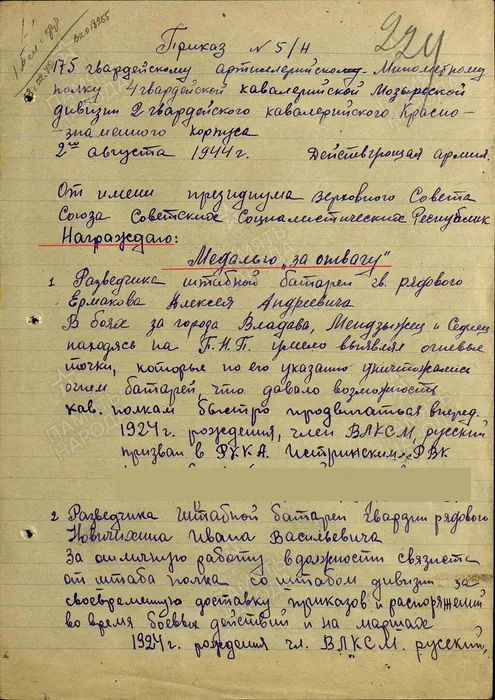 224
Приказ №5/н
175 гвардейскому артиллерийскому-Миномётному
полку 4 гвардейской кавалерийской Мозырской
дивизии 2 гвардейского кавалерийского Красно-
знаменного корпуса
2го августа 1944г. Действующая армия.
От имени президиума верховного Совета
Союза Советских Социалистических Республик
Награждаю:
Медалью „за отвагу"
1 Разведчика штабной батареи гв. рядового
Ермакова Алексея Андреевича
В боях за города Владава, Мендзыжец и Седлец
находясь на П.Н.П. умело выявлял огневые
точки, которые по его указанию уничтожались
огнем батарей, что давало возможность
кав. полкам быстро продвигаться вперед.
1924г. рождения, член ВЛКСМ, русский
призван в РККА Истринским РВК
2 Разведчика штабной батареи гвардии рядового
Новичихина Ивана Васильевича
За отличную работу в должности связиста
от штаба полка со штабом дивизии за
своевременную доставку приказов и распоряжений
во время боевых действий и на маршах
1924г. рождения чл. ВЛКСМ. русский,
ПАМЯТЬ
НАРОДА